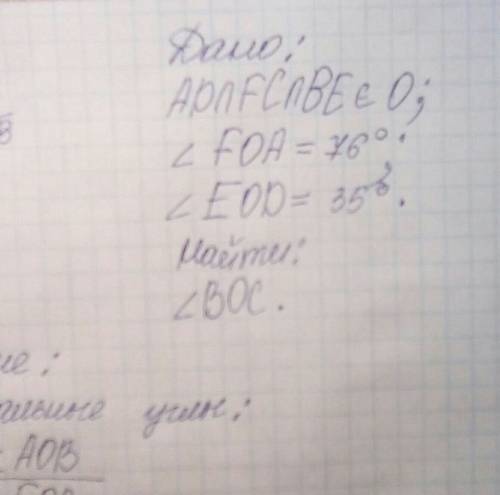 Дано:
AD∩FC∩BE ∈ O;
∠FOA = 76°;
∠EOD = 35°.
Найти:
∠BOC.
ие:
альные углы:
AOB